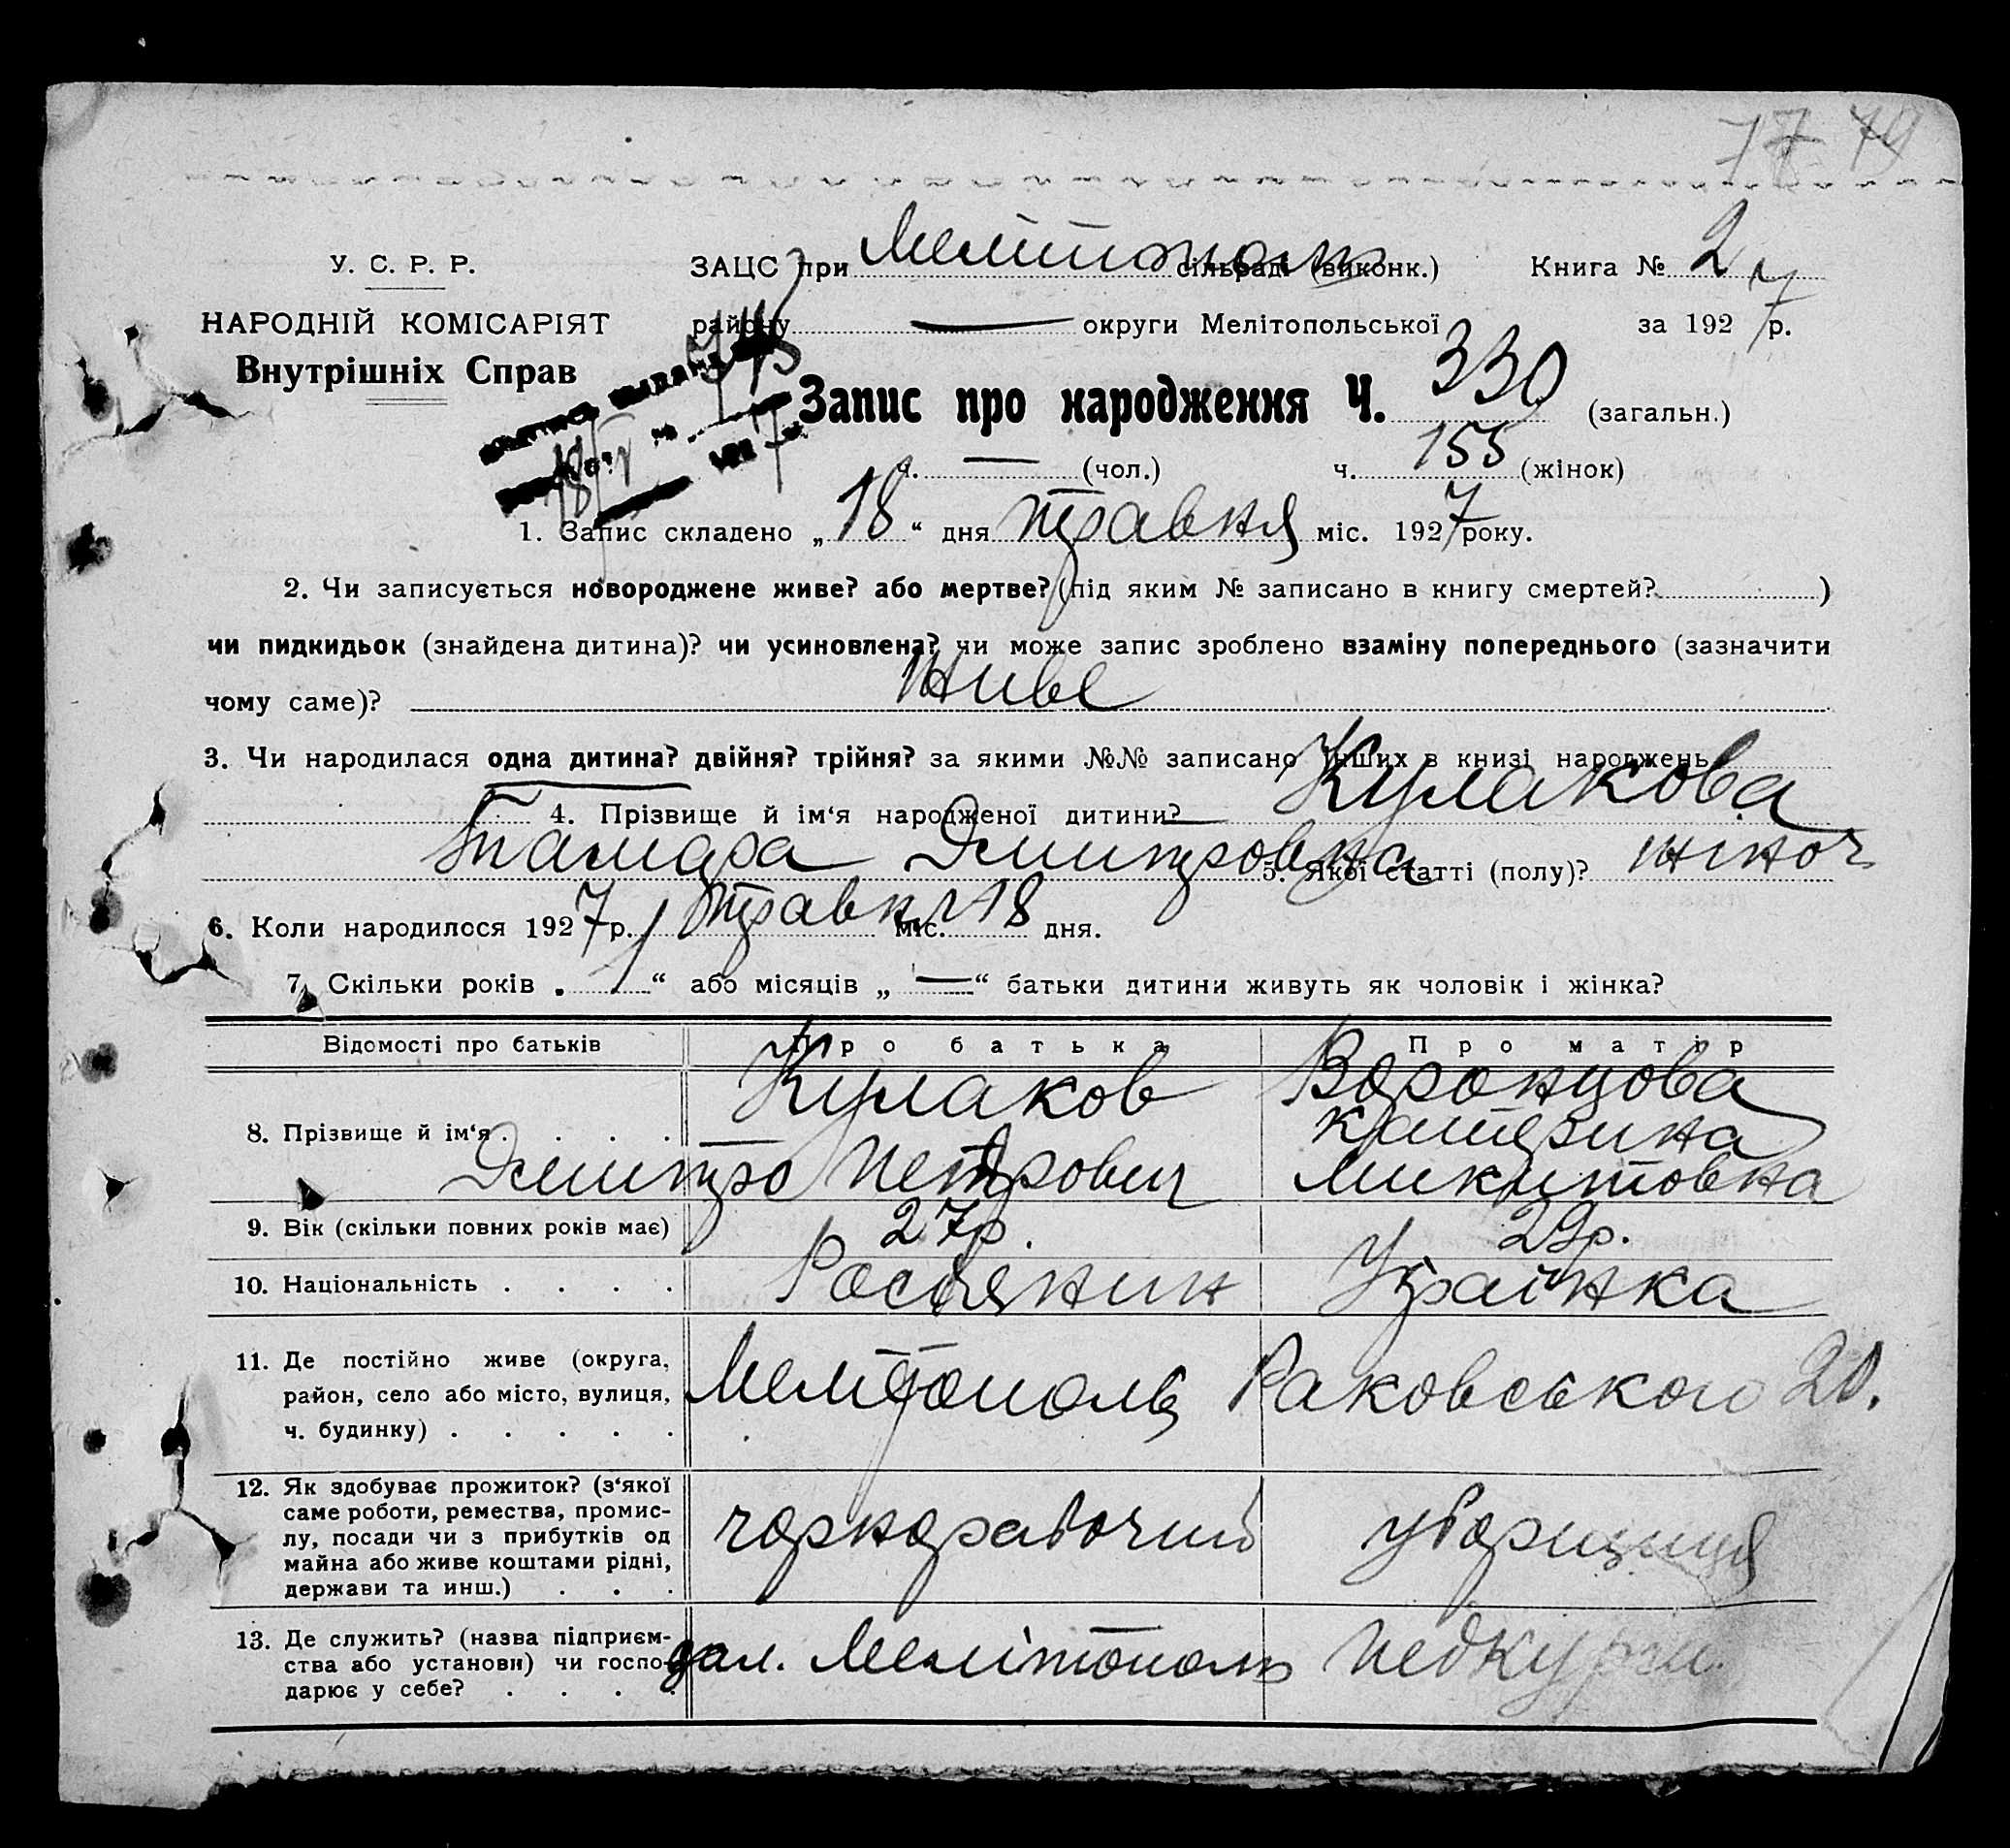 77 79
У. С. Р. Р.
ЗАЦС при Мелітополь сільраді (виконк.) Книга № 2
НАРОДНІЙ КОМІСАРІЯТ
району — округи Мелітопольської за 1927 р.
Внутрішніх Справ
Запис про народження Ч. 330 (загальн.)
ч. — (чол.) ч. 155 (жінок)
1. Запис складено „18“ дня травня міс. 1927 року.
2. Чи записується новороджене живе? або мертве? (під яким № записано в книгу смертей? )
чи пидкидьок (знайдена дитина)? чи усиновлена? чи може запис зроблено взаміну попереднього (зазначити
чому саме)? живе
3. Чи народилася одна дитина? двійня? трійня? за якими №№ записано інших в книзі народжень
4. Прізвище й ім‘я народженої дитини? Кулакова
Тамара Дмитровна 5. Якої статті (полу)? жіноч
6. Коли народилося 1927 р. травня міс. 18 дня.
7. Скільки років „1“ або місяців „—“ батьки дитини живуть як чоловік і жінка?
Відомості про батьків Про батька Про матір
8. Прізвище й ім‘я . . . . Кулаков Дмитро Петрович Воронцова Катерина Микитовна
9. Вік (скільки повних років має) 27р. 29р.
10. Національність . . . . Росіянин Українка
11. Де постійно живе (округа,
район, село або місто, вулиця, Мелітополь Раковського 20.
ч. будинку) . . . . .
12. Як здобуває прожиток? (з‘якої
саме роботи, ремества, промис-
лу, посади чи з прибутків од чорнорабочий уборщиця
майна або живе коштами рідні,
держави та инш.) . . .
13. Де служить? (назва підприєм-
ства або установи) чи госпо- Мелітополь
дарює у себе? . . . .